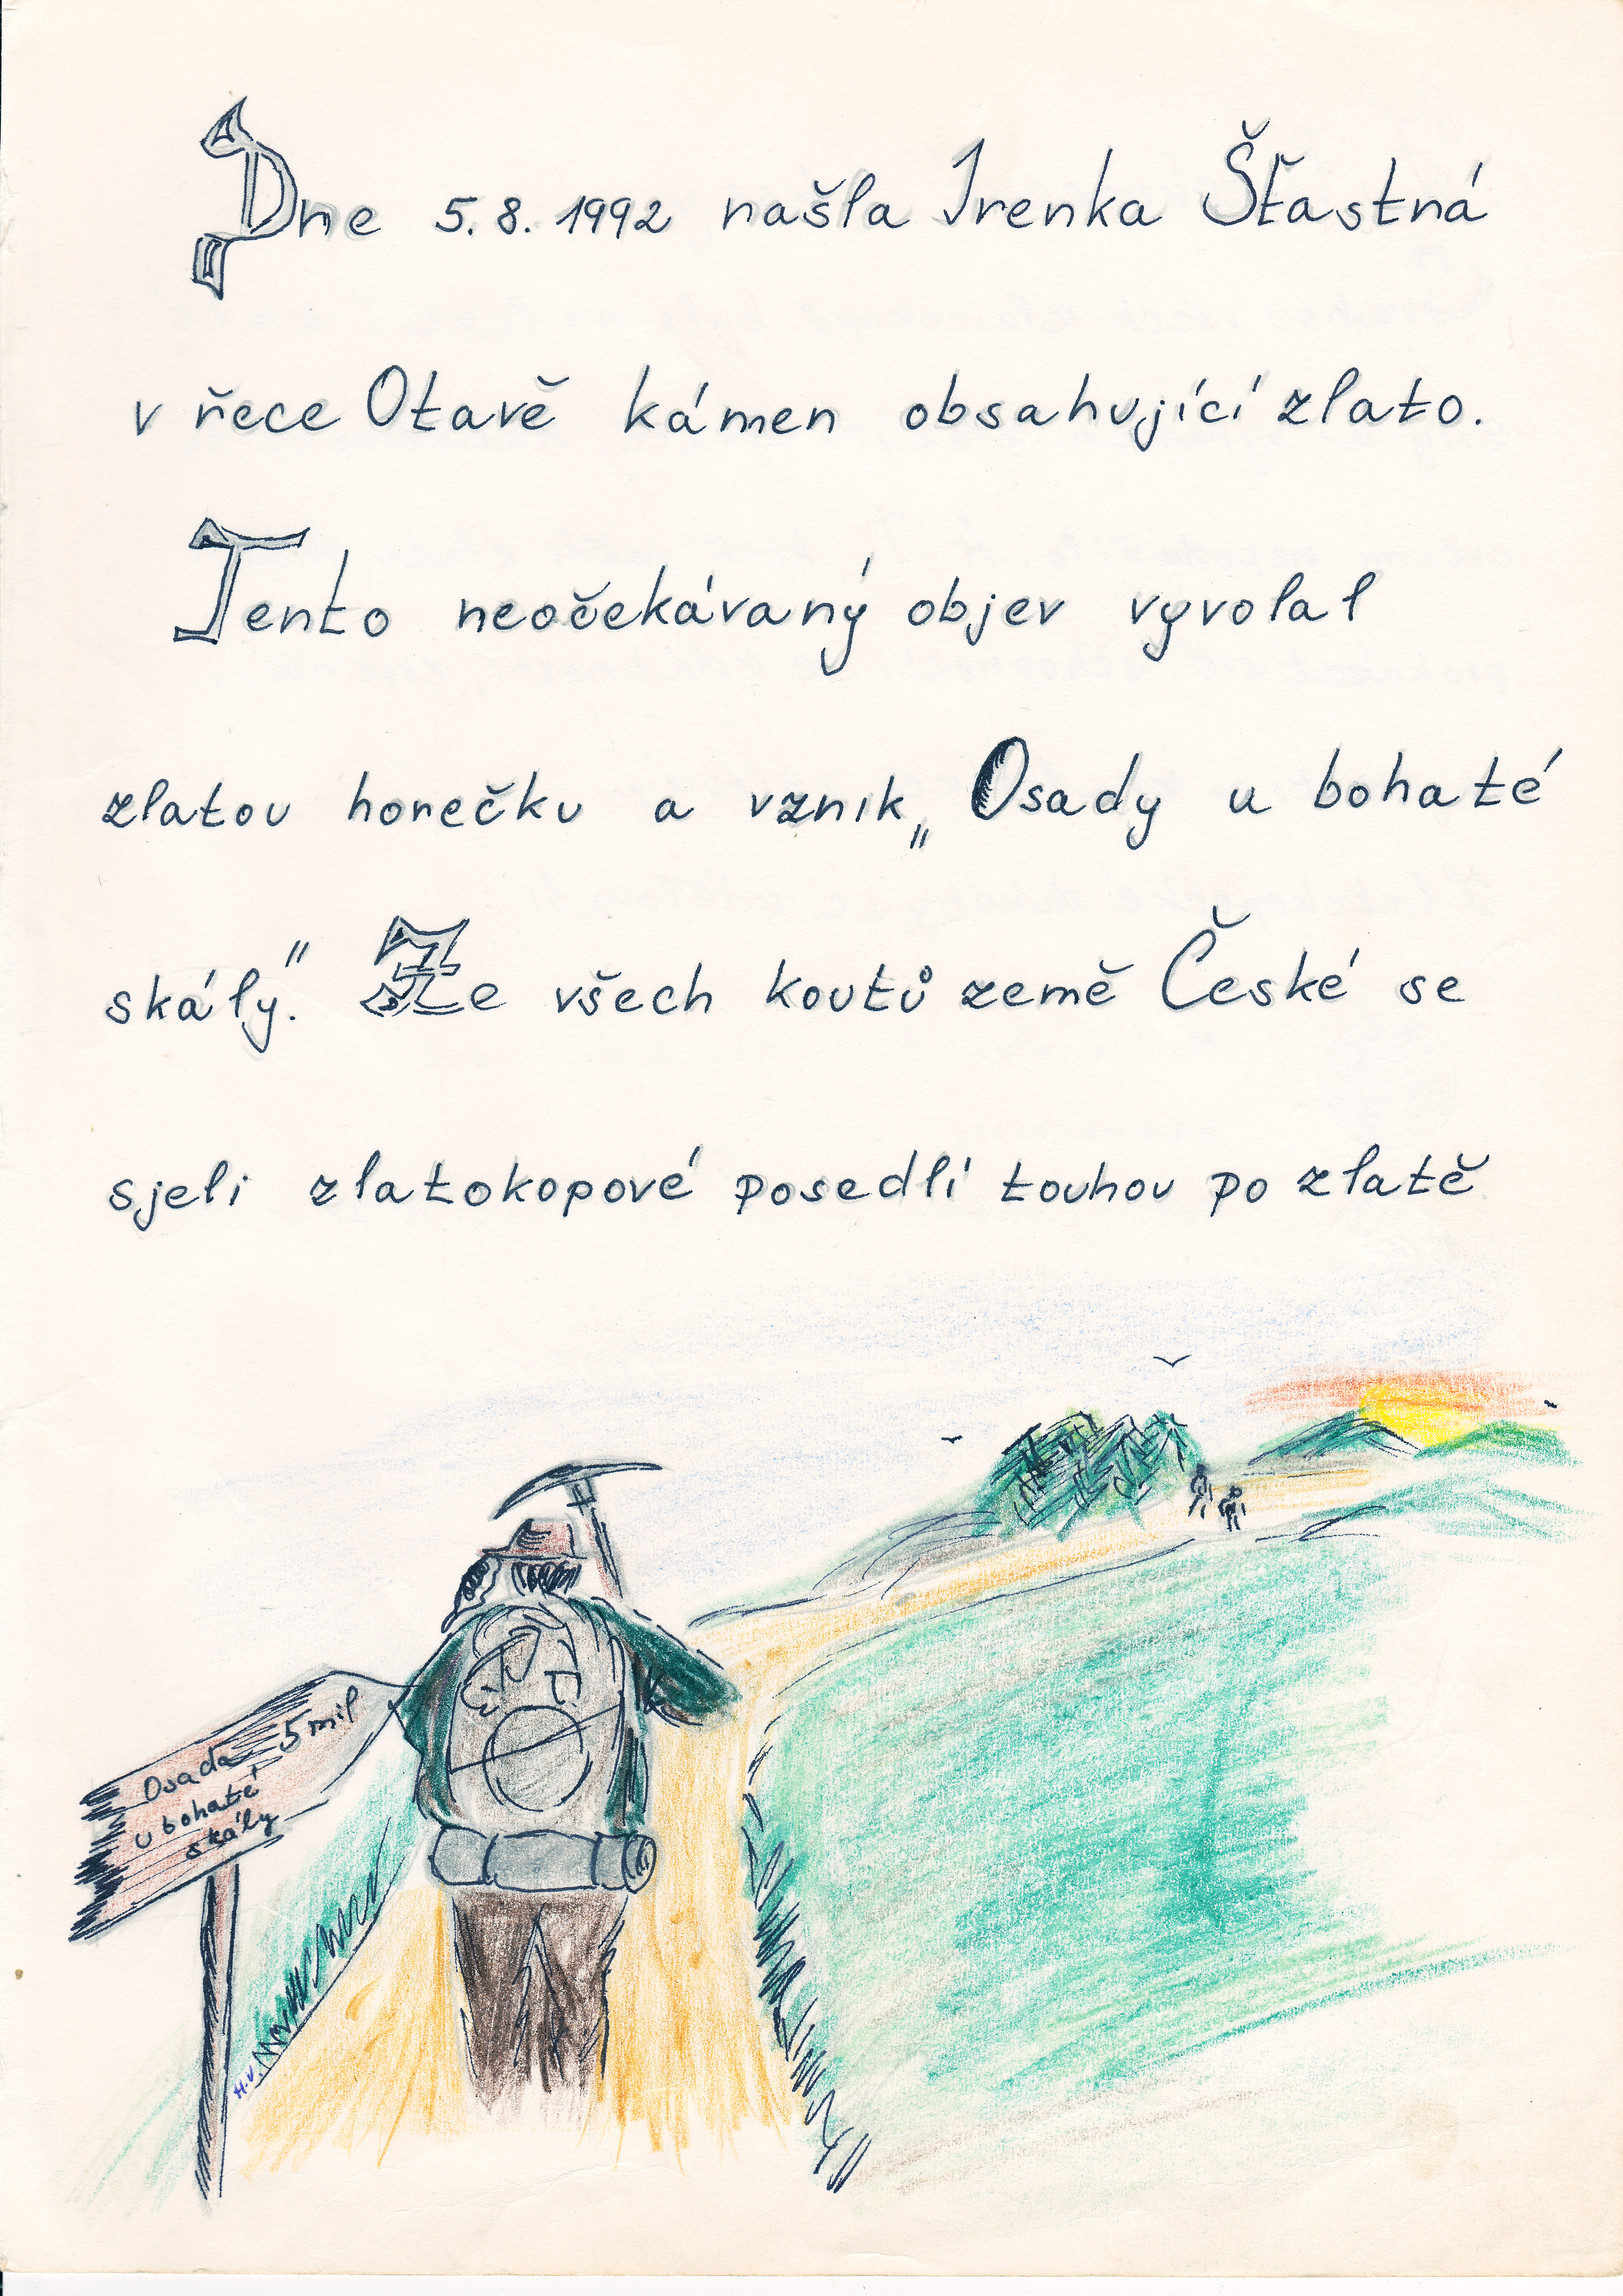 Dne 5.8.1992 našla Irenka Šťastná
v řece Otavě kámen obsahující zlato.
Tento neočekávaný objev vyvolal
zlatou horečku a vznik „Osady u bohaté
skály.“ Ze všech koutů země České se
sjeli zlatokopové posedlí touhou po zlatě
Osada 5 mil
u bohaté
skály
H.V.